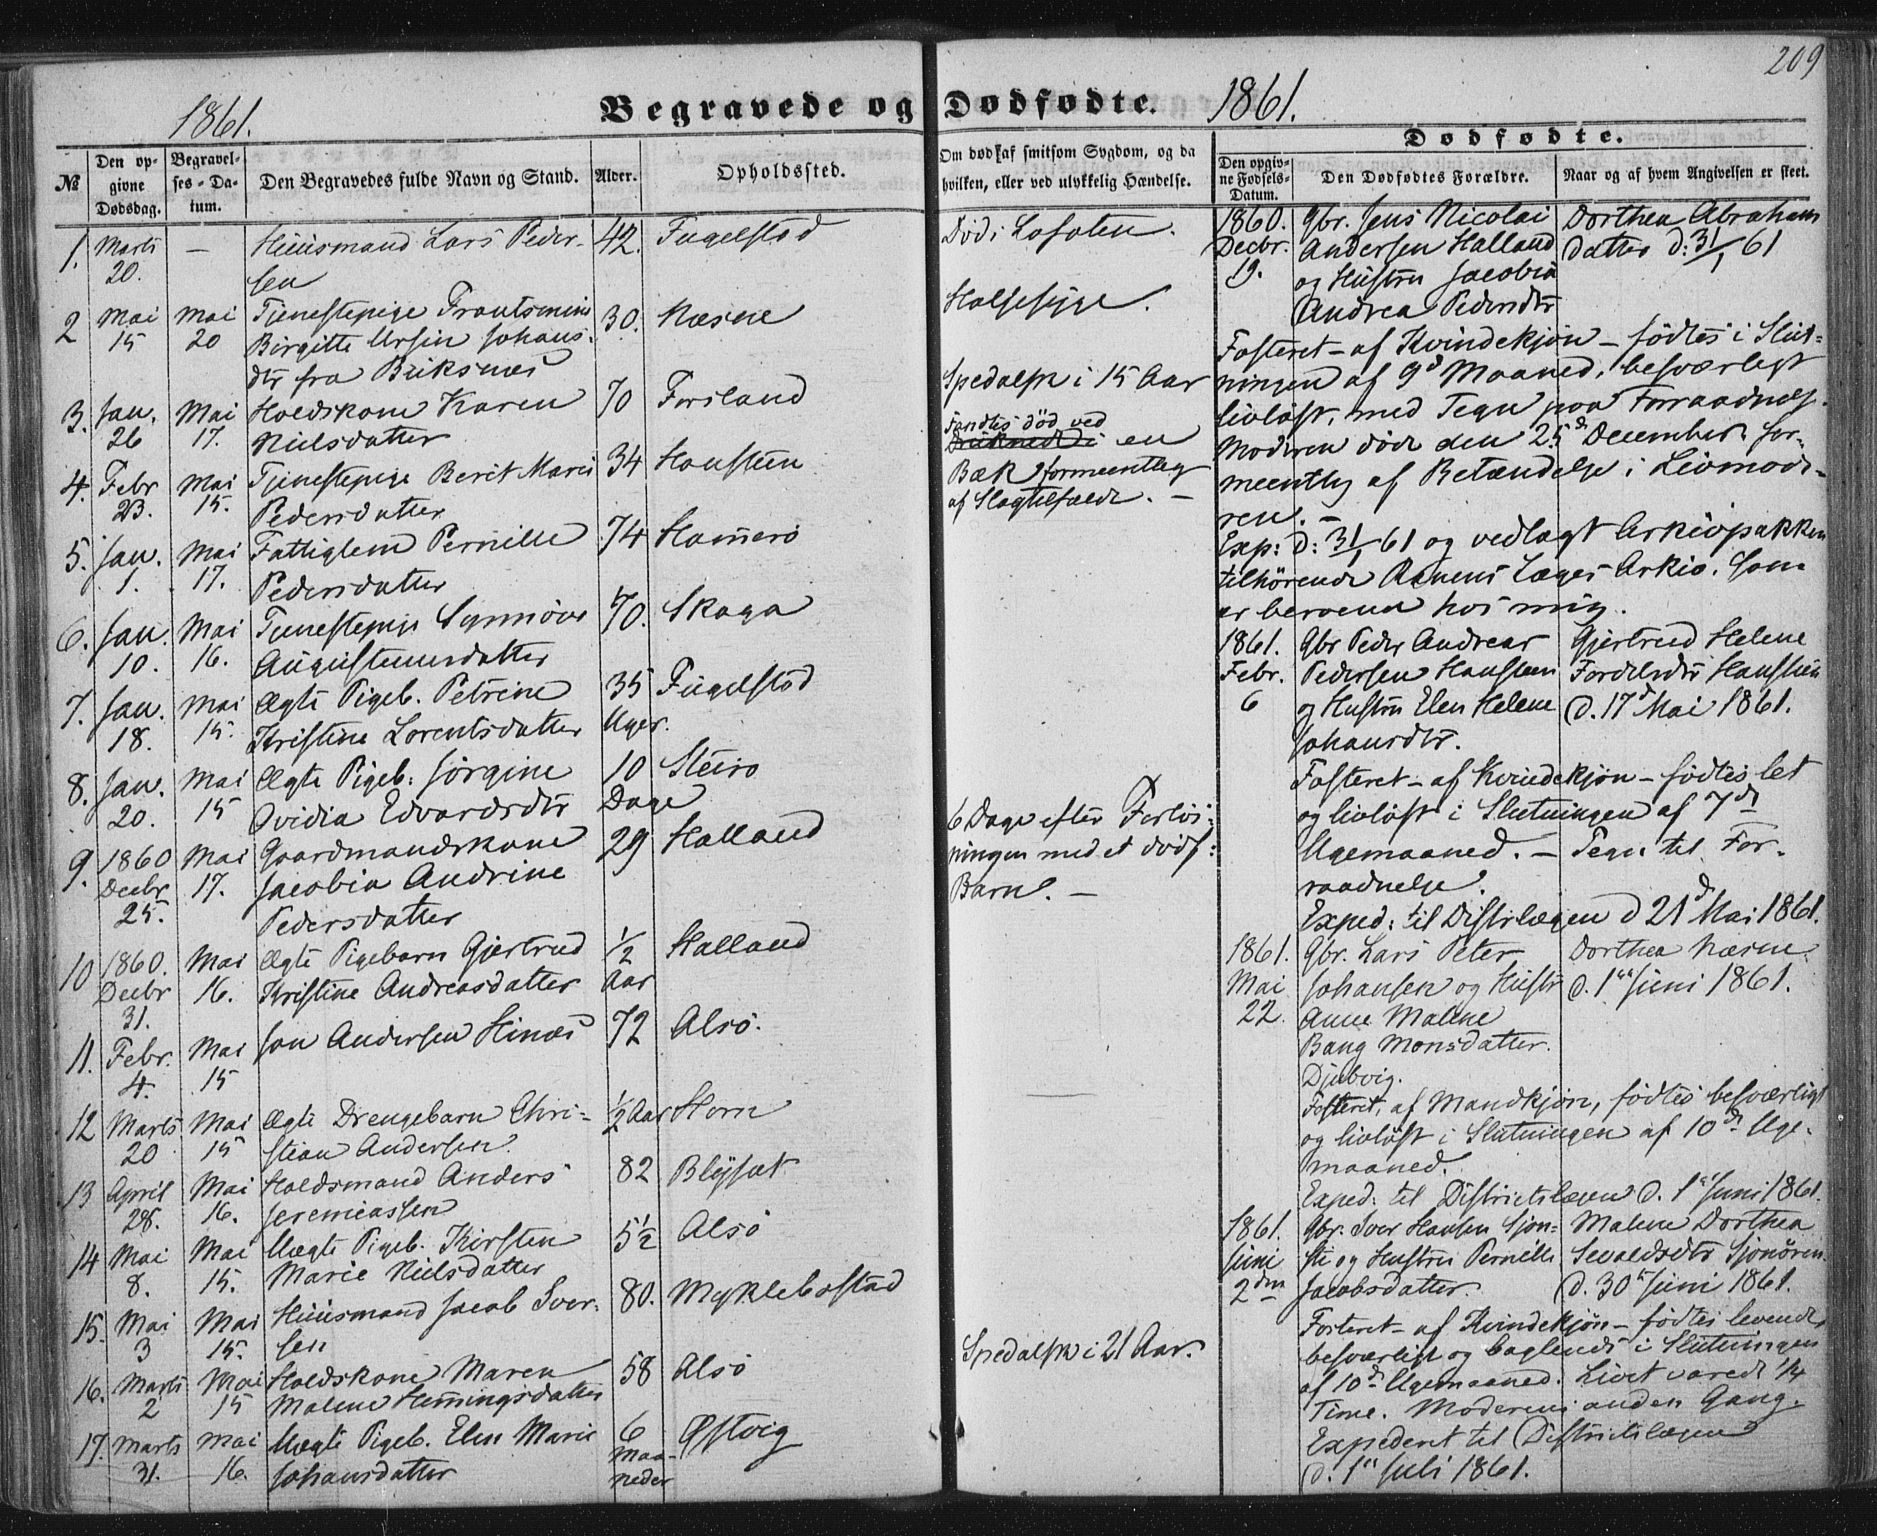 209
1861.
Begravede og Dødfødte.
1861.
Dødfødte.
№
Den op-
givne
Dødsdag.
Begravel-
ses-Da-
tum.
Den Begravedes fulde Navn og Stand.
Alder.
Opholdssted.
Om død af smitsom Sygdom, og da
hvilken, eller ved ulykkelig Hændelse.
Den opgiv-
ne Fødsels-
Datum.
Den Dødfødtes Forældre.
Naar og af hvem Angivelsen er skeet.
1. Marts 20. — Huusmand Lars Peder- 42. Fugelstad Død i Lofoten.
sen
2 Mai 15 Mai 20 Tjenestepige Frantsmine 30. Næsne Halsesyge.
Birgitte Ursin Johans-
dtr fra Buksnes
3. Jan. 26 Mai 17. Holdskone Karen 70 Forsland Spedalsk i 15 Aar
Nielsdatter
4. Febr 23. Mai 15. Tjenestepige Berit Marie 34 Hansteen Fandtes død ved
Pedersdatter
en
Bæk formeentleg
af Slagtilfælde. —
5. Jan. 1. Mai 17. Fattiglem Pernille 74 Hammerø
Pedersdatter
6. Jan. 10. Mai 16. Tjenestepige Synnøve 70. Skaga
Augustinusdatter
7. Jan. 18. Mai 15. Ægte Pigeb. Petrine 35 Fugelstad
Kristine Lorentsdatter Uger.
8. Jan. 20. Mai 15 Ægte Pigeb: Jørgine 10 Steiro
Ovidia Edvardsdtr Dage
9. 1860 Decbr 25. Mai 17. Gaardmandskone 29 Halland 6 Dage efter Forløs-
Jacobia Andrine ningen med et dødf:
Pedersdatter Barn. —
10 1860. Decbr 31. Mai 16. Ægte Pigebarn Gjertrud 1/2 Halland
Kristine Andreasdatter Aar
11. Febr. 4. Mai 15 Jon Andersen Hinæs 72 Alsø.
12 Marts 20 Mai 15 Ægte Drengebarn Chri- 1/2 Aar Horn
stian Andersen.
13 April 28. Mai 16. Holdsmand Anders 82 Blÿsæt
Jeremiassen
14 Mai 8. Mai 15. Uægte Pigeb. Kirsten 5 1/2 Alsø
Marie Nielsdatter
15. Mai 3 Mai 15. Huusmand Jacob Iver- 80. Myklebostad
sen
16. Marts 2 Mai 15 Holdskone Maren 58 Alsø Spedalsk i 21 Aar.
Malene Hemingsdatter
17. Marts 31. Mai 16. Uægte Pigeb. Elen Marie 6 Østvig
Johansdatter Maa-
neder
1860. Gbr. Jens Nicolai Dorthea Abrahams
Decbr. Andersen Halland datter d: 31/1 61
19. og Hustru Jacobia
Andrea Pedersdtr
Fosteret — af Kvindekjøn — fødtes i Slut-
ningen af 9d Maaned, besværligt
livløst, med Tegn paa Forraadnelse.
Moderen døde den 25d December for-
meentlig af Betændelse i Livmode-
ren. —
Exp: d: 31/1 61 og vedlagt Arkivpakken
tilhørende Ranens Læges Arkiv. som
er beroende hos mig.
1861. Gbr Peder Andreas Gjertrud Helene
Febr. Pedersen Hansteen Fordelsdtr Hansteen
6 og Hustru Elen Helene d. 17d Mai 1861.
Johansdtr.
Fosteret — af Kvindekjøn — fødtes let
og livløst i Slutningen af 7d
Ugemaaned. — Tegn til For-
raadnelse.
Exped: til Distrlægen d 21d Mai 1861.
1861. Gbr. Lars Peter Dorthea Næsne
Mai Johansen og Hustr d. 1ste Juni 1861.
22. Anne Malene
Bang Monsdatter.
Djubvig.
Fosteret, af Mandkjøn, fødtes besværligt
og livløst i Slutningen af 10d Uge-
maaned.
Exped: til Districtslægen d. 1ste Juni 1861.
1861. Gbr. Iver Hansen Sjon- Malene Dorthea
Juni sti og Hustru Pernille Sevaldsdtr Sjonøren
2den Jacobsdatter. d. 30te Juni 1861.
Fosteret — af Kvindekjøn — fødtes levende,
besværligt og baglends i Slutningen
af 10d Ugemaaned. Livet varede 1/4
Time. Moderens anden Gang.
Expederet til Districtslægen
d. 1ste Juli 1861.